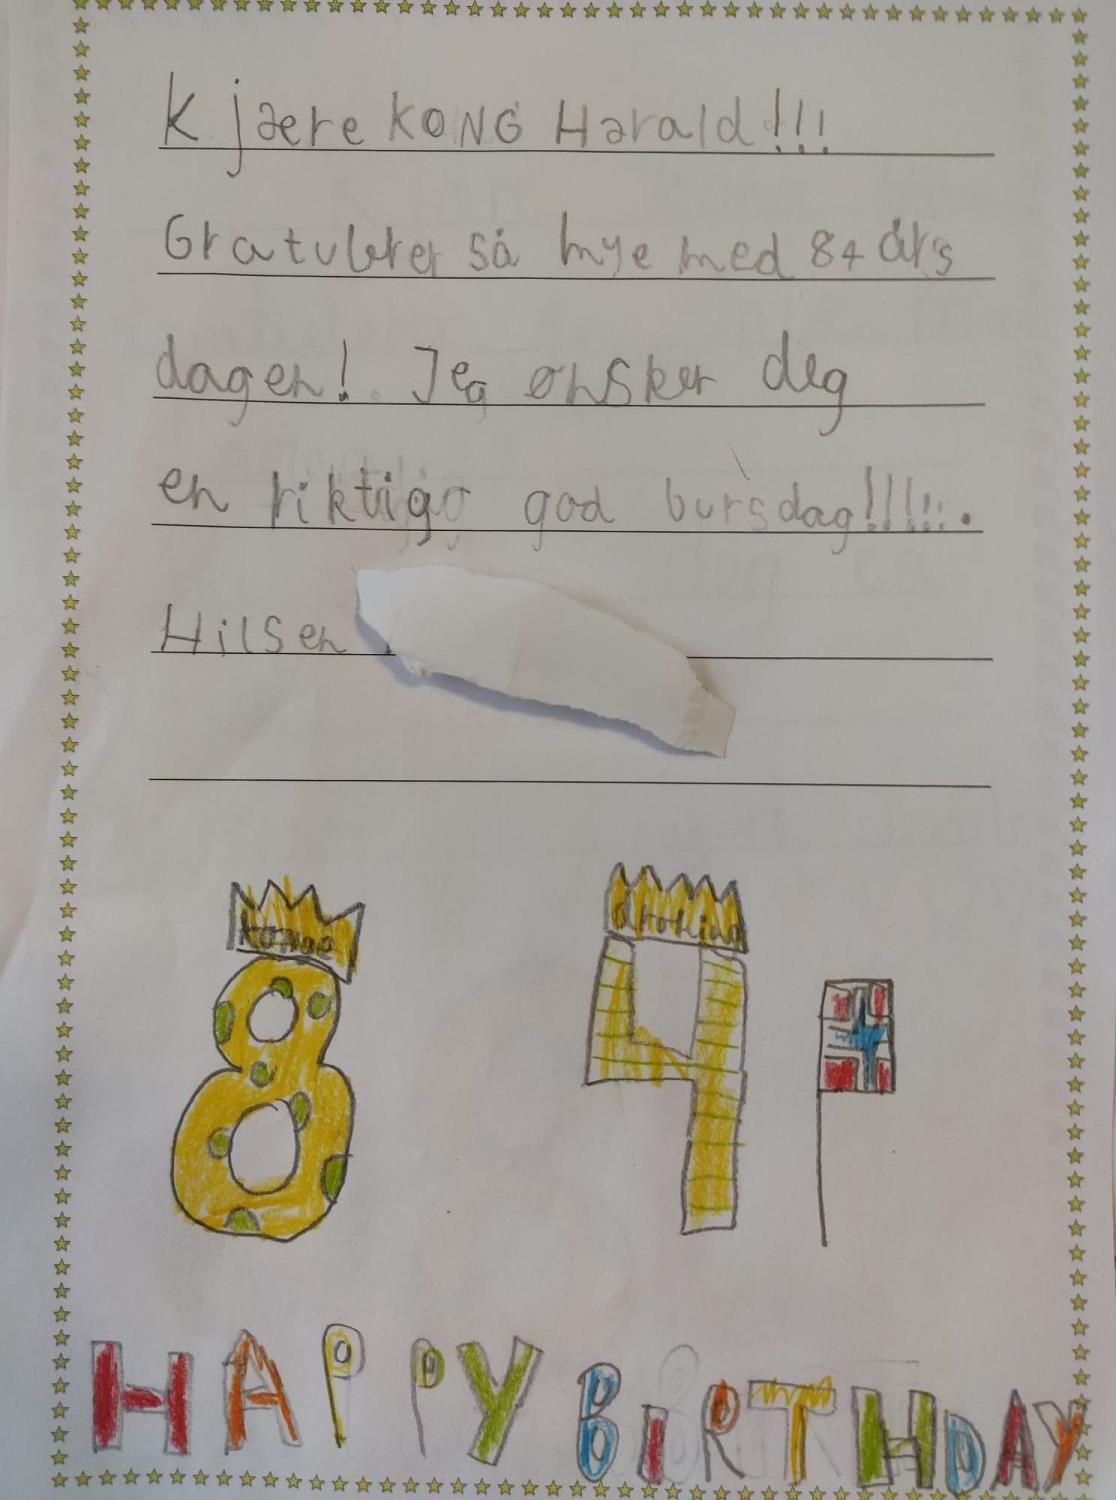 Kjære KONG Harald!!!
Gratulerer så mye med 84 års
dagen! Jeg ønsker deg
en riktig god bursdag!!!!!!.
Hilsen
konge
dronning
84
HAPPY BIRTHDAY